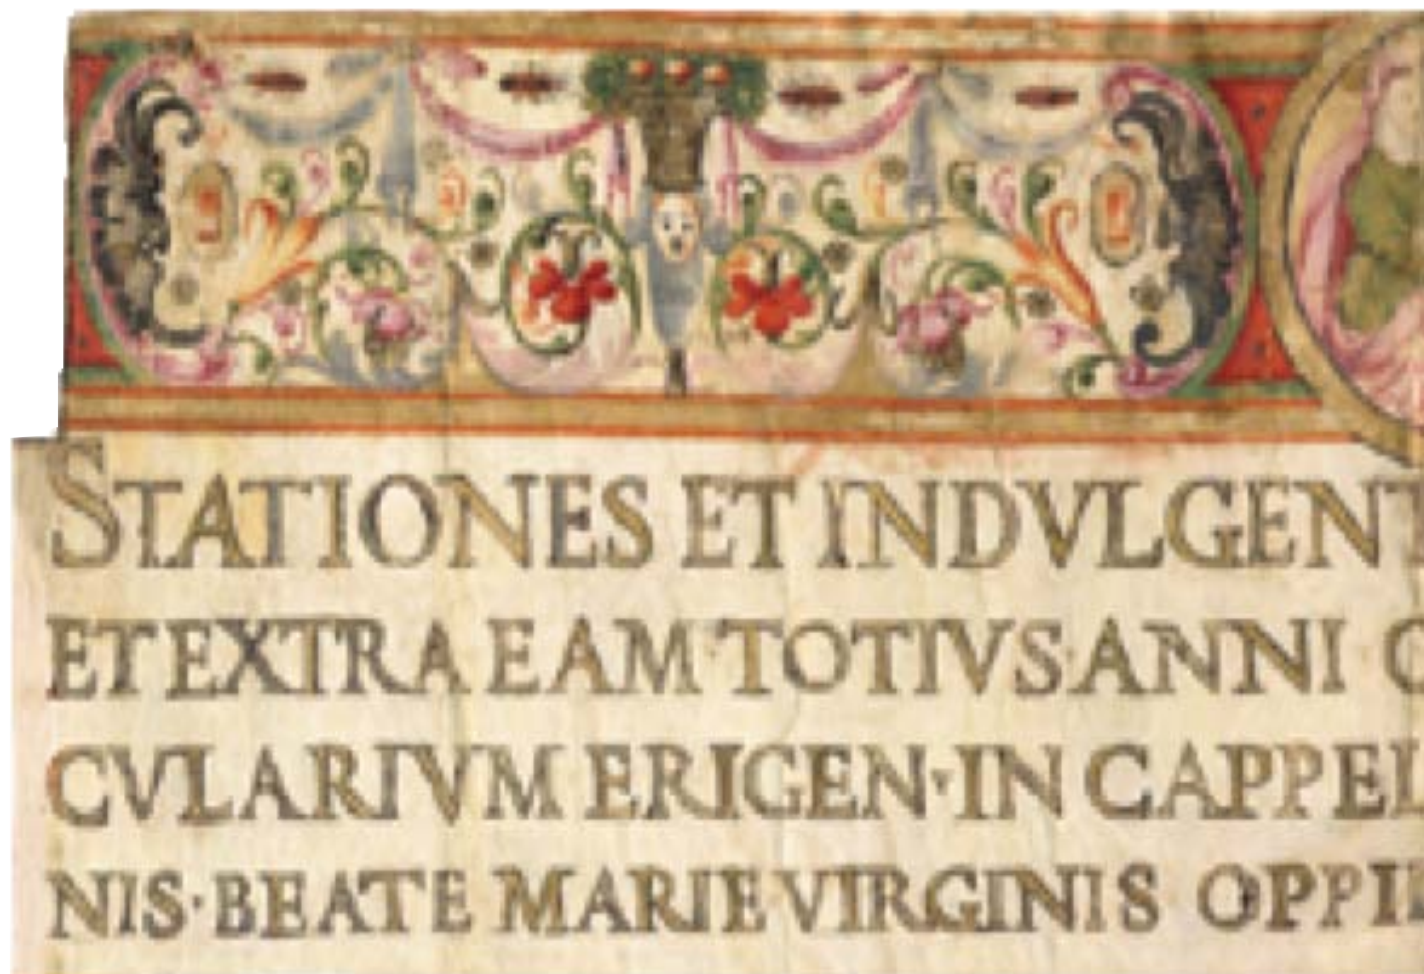 STATIONES ET INDVLGENT
ET EXTRA EAM·TOTIVS·ANNI C
CVLARIVM ERIGEN·IN CAPPEL
NIS·BEATE MARIE VIRGINIS OPPI